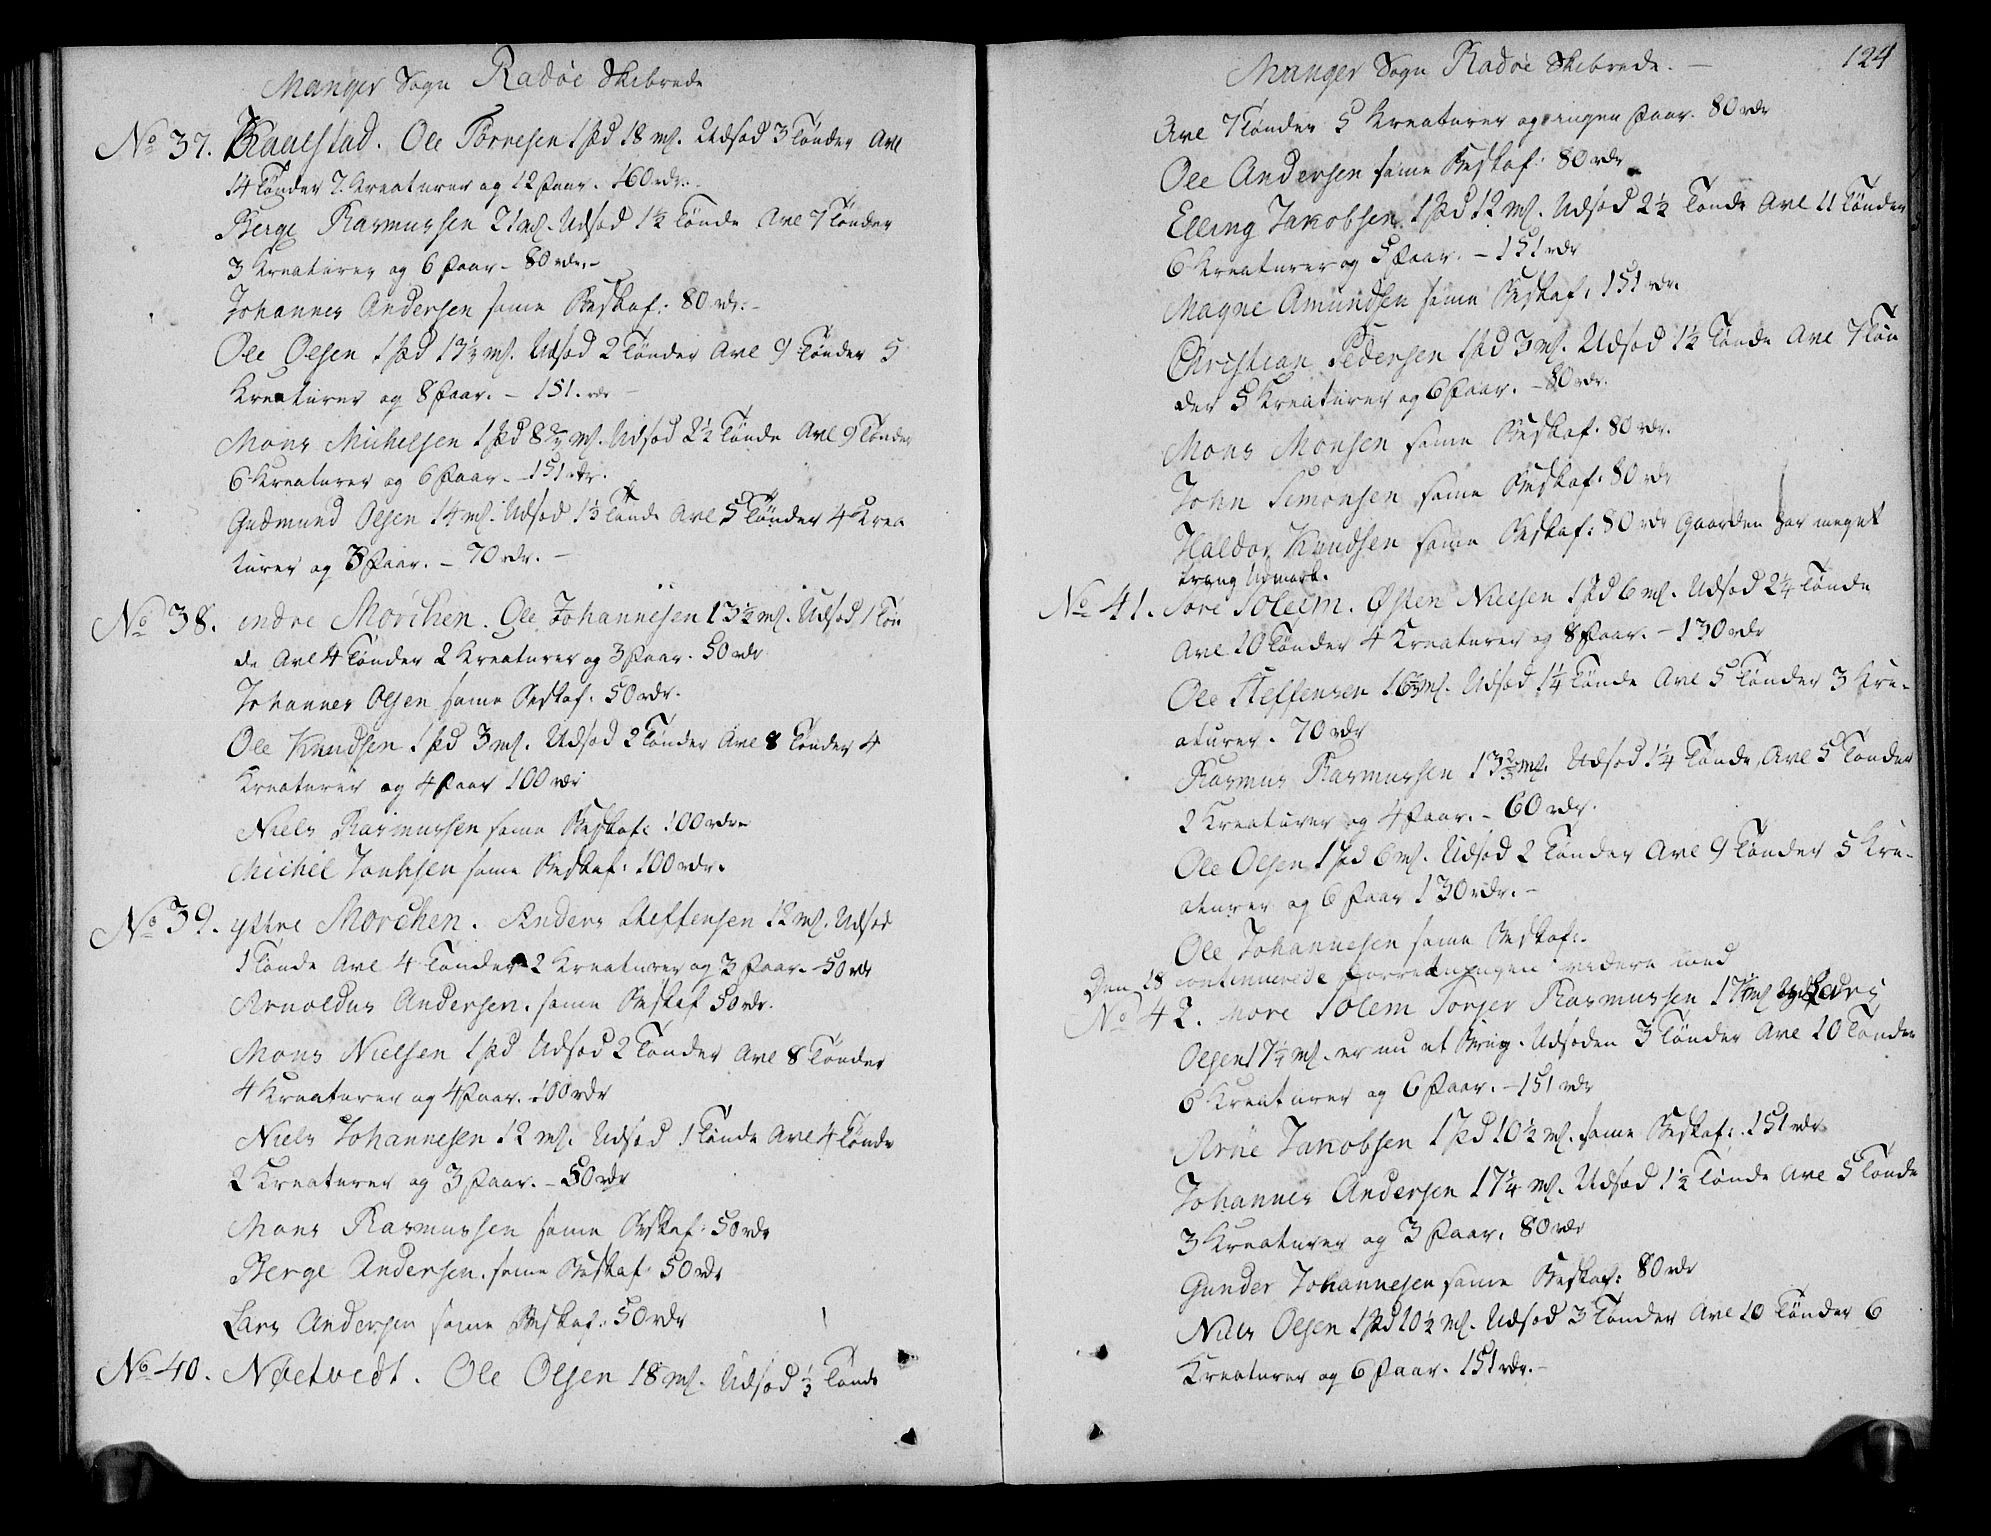 Manger Sogn Radøe Skibrede
No 37. Kaalstad. Ole Torresen 1 pd 18 mk. Udsæd 3 Tønder Avl
14 Tønder 7 Kreaturer og 12 Faar. 160 rdr.
Berge Rasmussen 21 mk. Udsæd 1½ Tønde Avl 7 Tønder
3 Kreaturer og 6 Faar - 80 rdr. -
Johannes Andersen same Beskaf: 80 rdr. -
Ole Olsen 1 pd 13½ mk. Udsæd 2 Tønder Avl 9 Tønder 5
Kreaturer og 8 Faar. - 151. rdr -
Mons Michelsen 1 pd mk. Udsæd 2½ Tønde Avl 9 Tønder
6 Kreaturer og 6 Faar - 151 rdr.
Gudmund Olsen 14 mk. Udsæd Tønde Avl 5 Tønder 4 Krea
turer og 3 Faar. - 70 rdr. -
No 38. indre Mörchen. Ole Johannesen 13½ mk. Udsæd 1 Tøn
de Avl 4 Tønder 2 Kreaturer og 3 Faar. 50 rdr
Johannes Olsen same Beskaf. 50 rdr.
Ole Knudsen 1 pd 3 mk. Udsæd 2 Tønder Avl 8 Tønder 4
Kreaturer og 4 Faar 100 rdr
Niels Rasmussen same Beskaf: 100 rdr.
Michel same Beskaf: 100 rdr.
No 39. yttre Mörchen. Anders Steffensen 12 mk. Udsæd
1 Tønde Avl 4 Tønder 2 Kreaturer og 3 Faar. 50 rdr
Arnoldus Andersen. same Beskaf 50 rdr.
Mons Nielsen 1 pd Udsæd 2 Tønder Avl 8 Tønder
4 Kreaturer og 4 Faar. 100 rdr
Niels Johannesen 12 mk. Udsæd 1 Tønde Avl 4 Tønde
2 Kreaturer og 3 Faar. - 50 rdr
Mons Rasmussen same Beskaf: 50 rdr
Berge Andersen. same Beskaf 50 rdr
Lars Andersen same Beskaf: 50 rdr
No 40. Nøetvedt. Ole Olsen 18 mk. Udsæd Tønde
Manger Sogn Radøe Skibrede. -
124
Avl 7 Tønder 5 Kreaturer og ingen Faar. 80 rdr
Ole Andersen same Beskaf: 80 rdr
Elling Jakobsen 1 pd 12 mk. Udsæd 2½ Tønde Avl 11 Tønder
6 Kreaturer og 5 Faar. - 151 rdr
Magne Amundsen same Beskaf: 151 rdr.
Christian Pedersen 1 pd 3 mk. Udsæd 1½ Tønde Avl 7 Tøn
der 5 Kreaturer og 6 Faar. - 80 rdr.
Mons Monsen same Beskaf. 80 rdr.
John Simonsen same Beskaf. 80 rdr
Haldor Knudsen same Beskaf: 80 rdr Gaarden har meget
trang Udmark.
No 41. Søre Soleim. Østen Nielsen 1 pd 6 mk. Udsæd 2¼ Tønde
Avl 10 Tønder 4 Kreaturer og 8 Faar. - 130 rdr
Ole Steffensen mk. Udsæd 1¼ Tønde Avl 5 Tønder 3 Kre-
aturer. 70 rdr
Rasmus Rasmussen mk. Udsæd 1¼ Tønde, Avl 5 Tønder
2 Kreaturer og 4 Faar. - 60 rdr.
Ole Olsen 1 pd 6 mk. Udsæd 2 Tønder Avl 9 Tønder 5 Kre-
aturer og 6 Faar 130 rdr. -
Ole Johannesen same Beskaf:
Den 18 continuerede forretningen videre med
No 42. Nore Solem Torger Rasmussen mk og Lars
Olsen 17¼ mk. er nu et Brug. Udsæden 3 Tønder Avl 10 Tønder
6 Kreaturer og 6 Faar. - 151 rdr
Arne Jakobsen 1 pd 10½ mk. same Beskaf: 151 rdr
Johannes Andersen 17¼ mk. Udsæd 1½ Tønde Avl 5 Tønde
3 Kreaturer og 3 Faar. 80 rdr
Gunder Johannesen same Beskaf: 80 rdr
Niels Olsen 1 pd 10½ mk. Udsæd 3 Tønder Avl 10 Tønder 6
Kreaturer og 6 Faar. 151 rdr. -